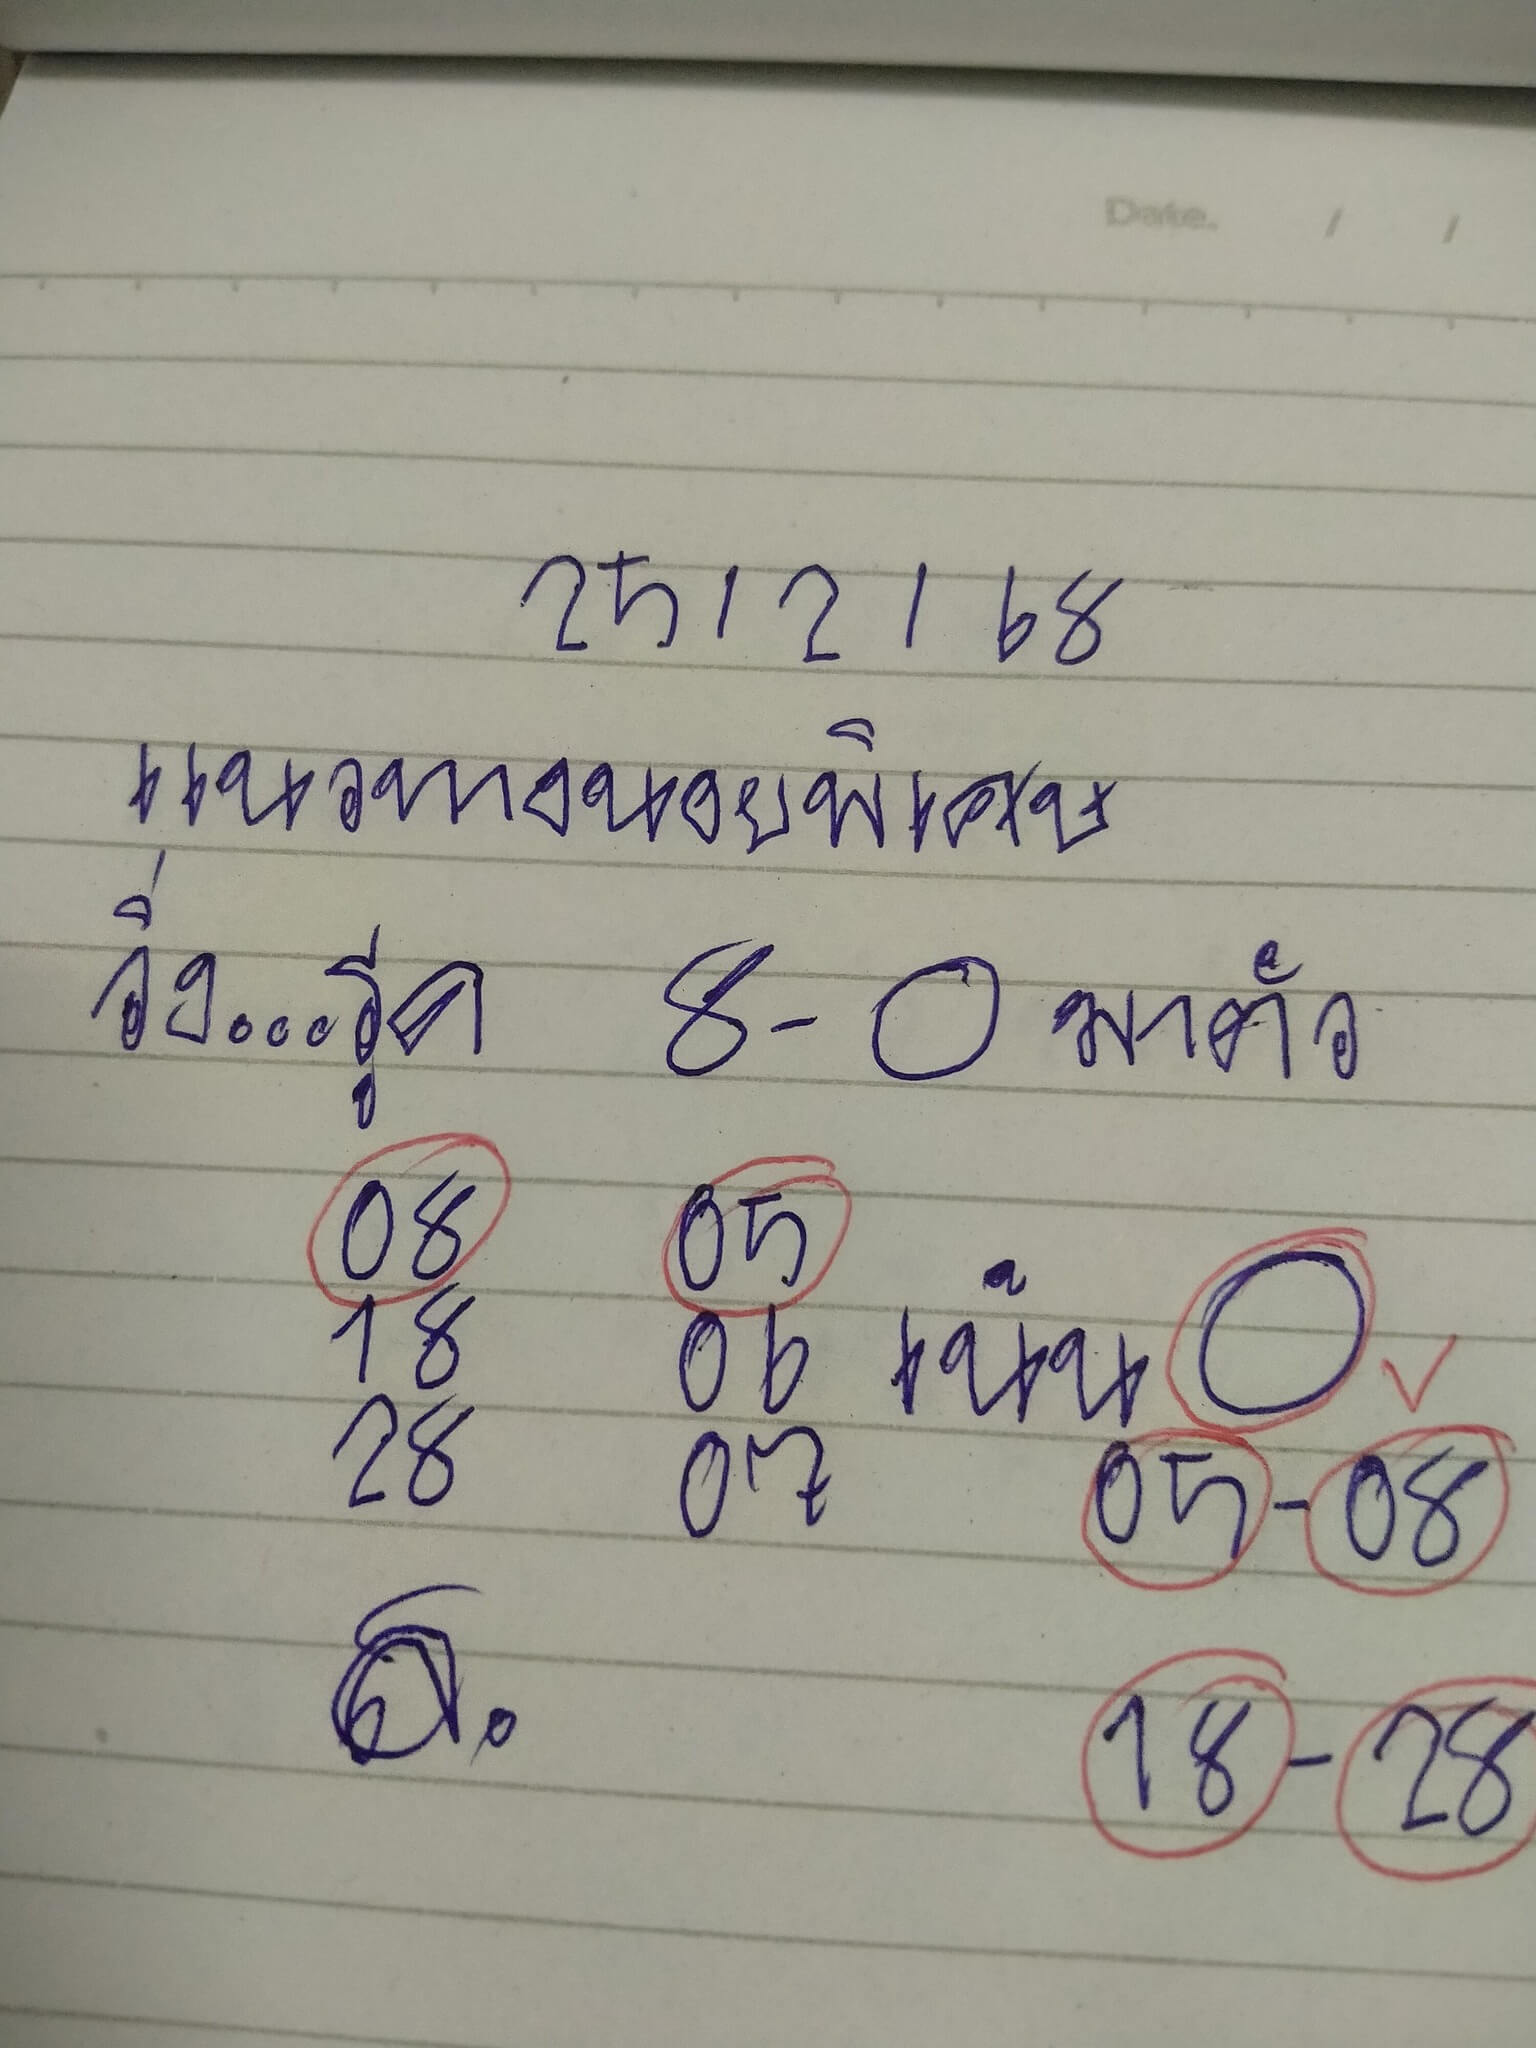 Date. / /
25/2/68
แนวทางนอยพิเศษ
วิ่ง...รูด 8-0 มาตัว
08 05
18 06 เน้น 0 ✓
28 07 05-08
18-28